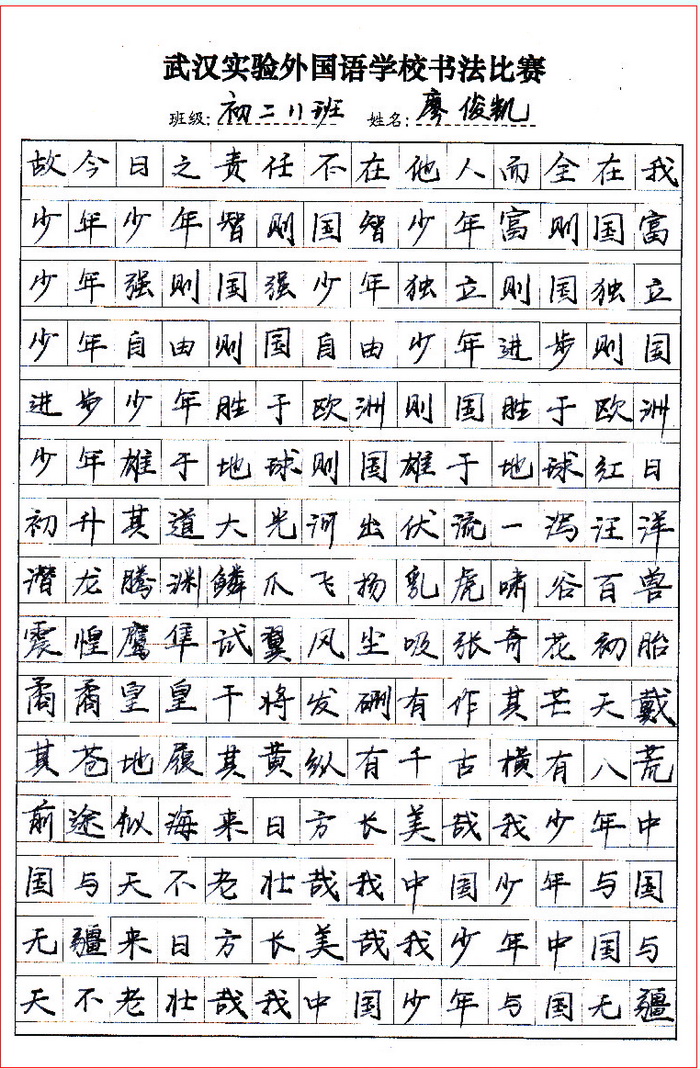 武汉实验外国语学校书法比赛
班级: 初二11班 姓名: 廖俊凯
故今日之责任不在他人而全在我
少年少年智则国智少年富则国富
少年强则国强少年独立则国独立
少年自由则国自由少年进步则国
进步少年胜于欧洲则国胜于欧洲
少年雄于地球则国雄于地球红日
初升其道大光河出伏流一泻汪洋
潜龙腾渊鳞爪飞扬乳虎啸谷百兽
震惶鹰隼试翼风尘吸张奇花初胎
矞矞皇皇干将发硎有作其芒天戴
其苍地履其黄纵有千古横有八荒
前途似海来日方长美哉我少年中
国与天不老壮哉我中国少年与国
无疆来日方长美哉我少年中国与
天不老壮哉我中国少年与国无疆